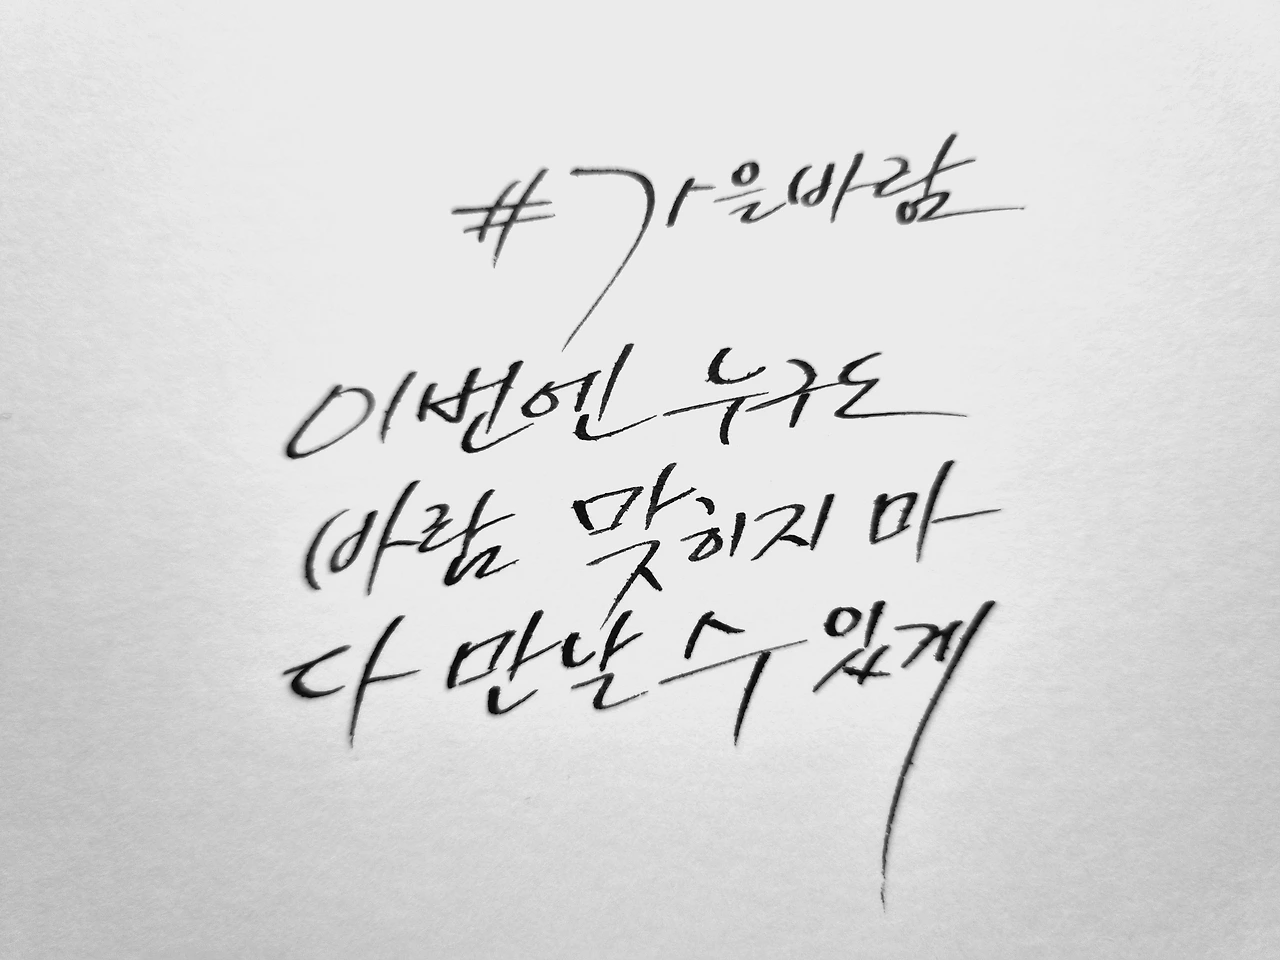 #가을바람
이번엔 누구도
바람 맞히지 마
다 만날 수 있게